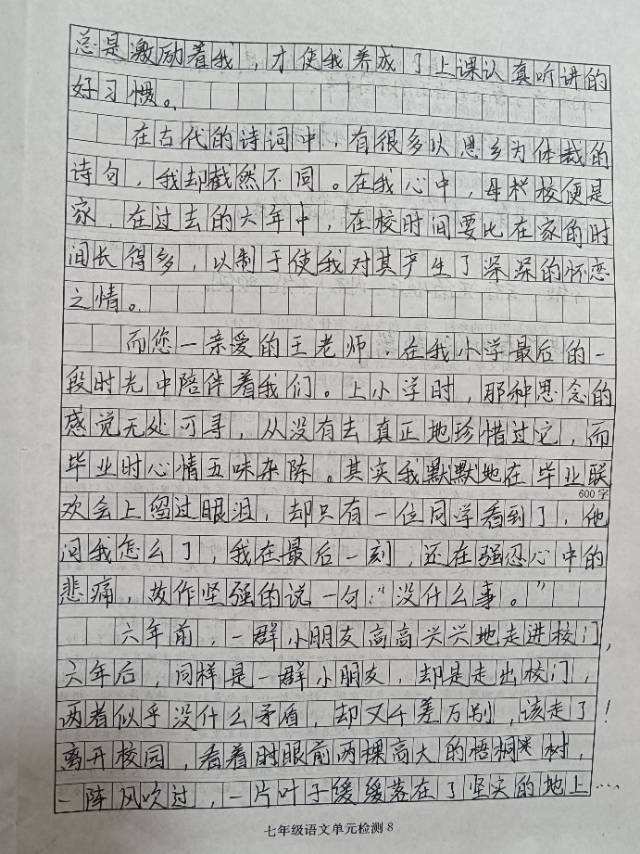 总是激励着我，才使我养成了上课认真听讲的
好习惯。
在古代的诗词中，有很多以思乡为体裁的
诗句，我却截然不同。在我心中，母校便是
家，在过去的六年中，在校时间要比在家的时
间长得多，以制于使我对其产生了深深的怀恋
之情。
而您一亲爱的王老师，在我小学最后的一
段时光中陪伴着我们。上小学时，那种思念的
感觉无处可寻，从没有去真正地珍惜过它，而
毕业时心情五味杂陈。其实我默默地在毕业联
600字
欢会上留过眼泪，却只有一位同学看到了，他
问我怎么了，我在最后一刻，还在强忍心中的
悲痛，故作坚强的说一句：“没什么事。”
六年前，一群小朋友高高兴兴地走进校门，
六年后，同样是一群小朋友，却是走出校门，
两者似乎没什么矛盾，却又千差万别，该走了！
离开校园，看着时眼前两棵高大的梧桐树，
一阵风吹过，一片叶子缓缓落在了坚实的地上…
七年级语文单元检测8